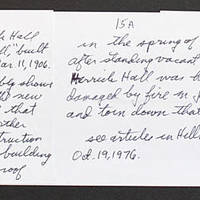 k Hall
ll," built
ar. 11, 1906.
bly shows
the new
that
other
truction
building
roof
15A
in the spring of
after standing vacant
Herrick Hall was b
damaged by fire in J
and torn down that
see articles in Hill
Oct. 19, 1976.